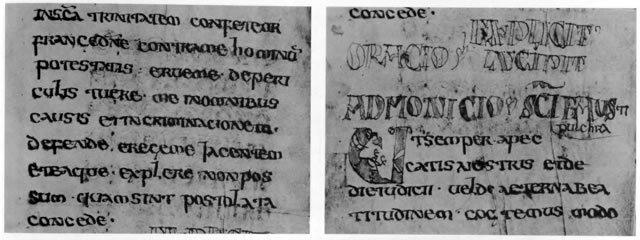 INSCA TRINITATEM CONFETEOR
FRANGEDNE CONTRAME hOMINU
POTESTATIS · ERUEME · DEPERI
CULIS · TUERE · ME INOMNIBUS
CAUSIS ETINCRIMINACIONEM ·
DEFENDE · ERECEME JACENTEM
ETEAQUE · EXPLERE NONPOS
SUM · QUAMSINT POSTULATA
CONCEDE ·
CONCEDE ·
EXPLICIT
ORACIO INCIPIT
ADMONICIO SCI
pulchra
UTSEMPER APEC
CATIS NOSTRIS ETDE
UELDE AETERNABEA
TITUDINEM MODO